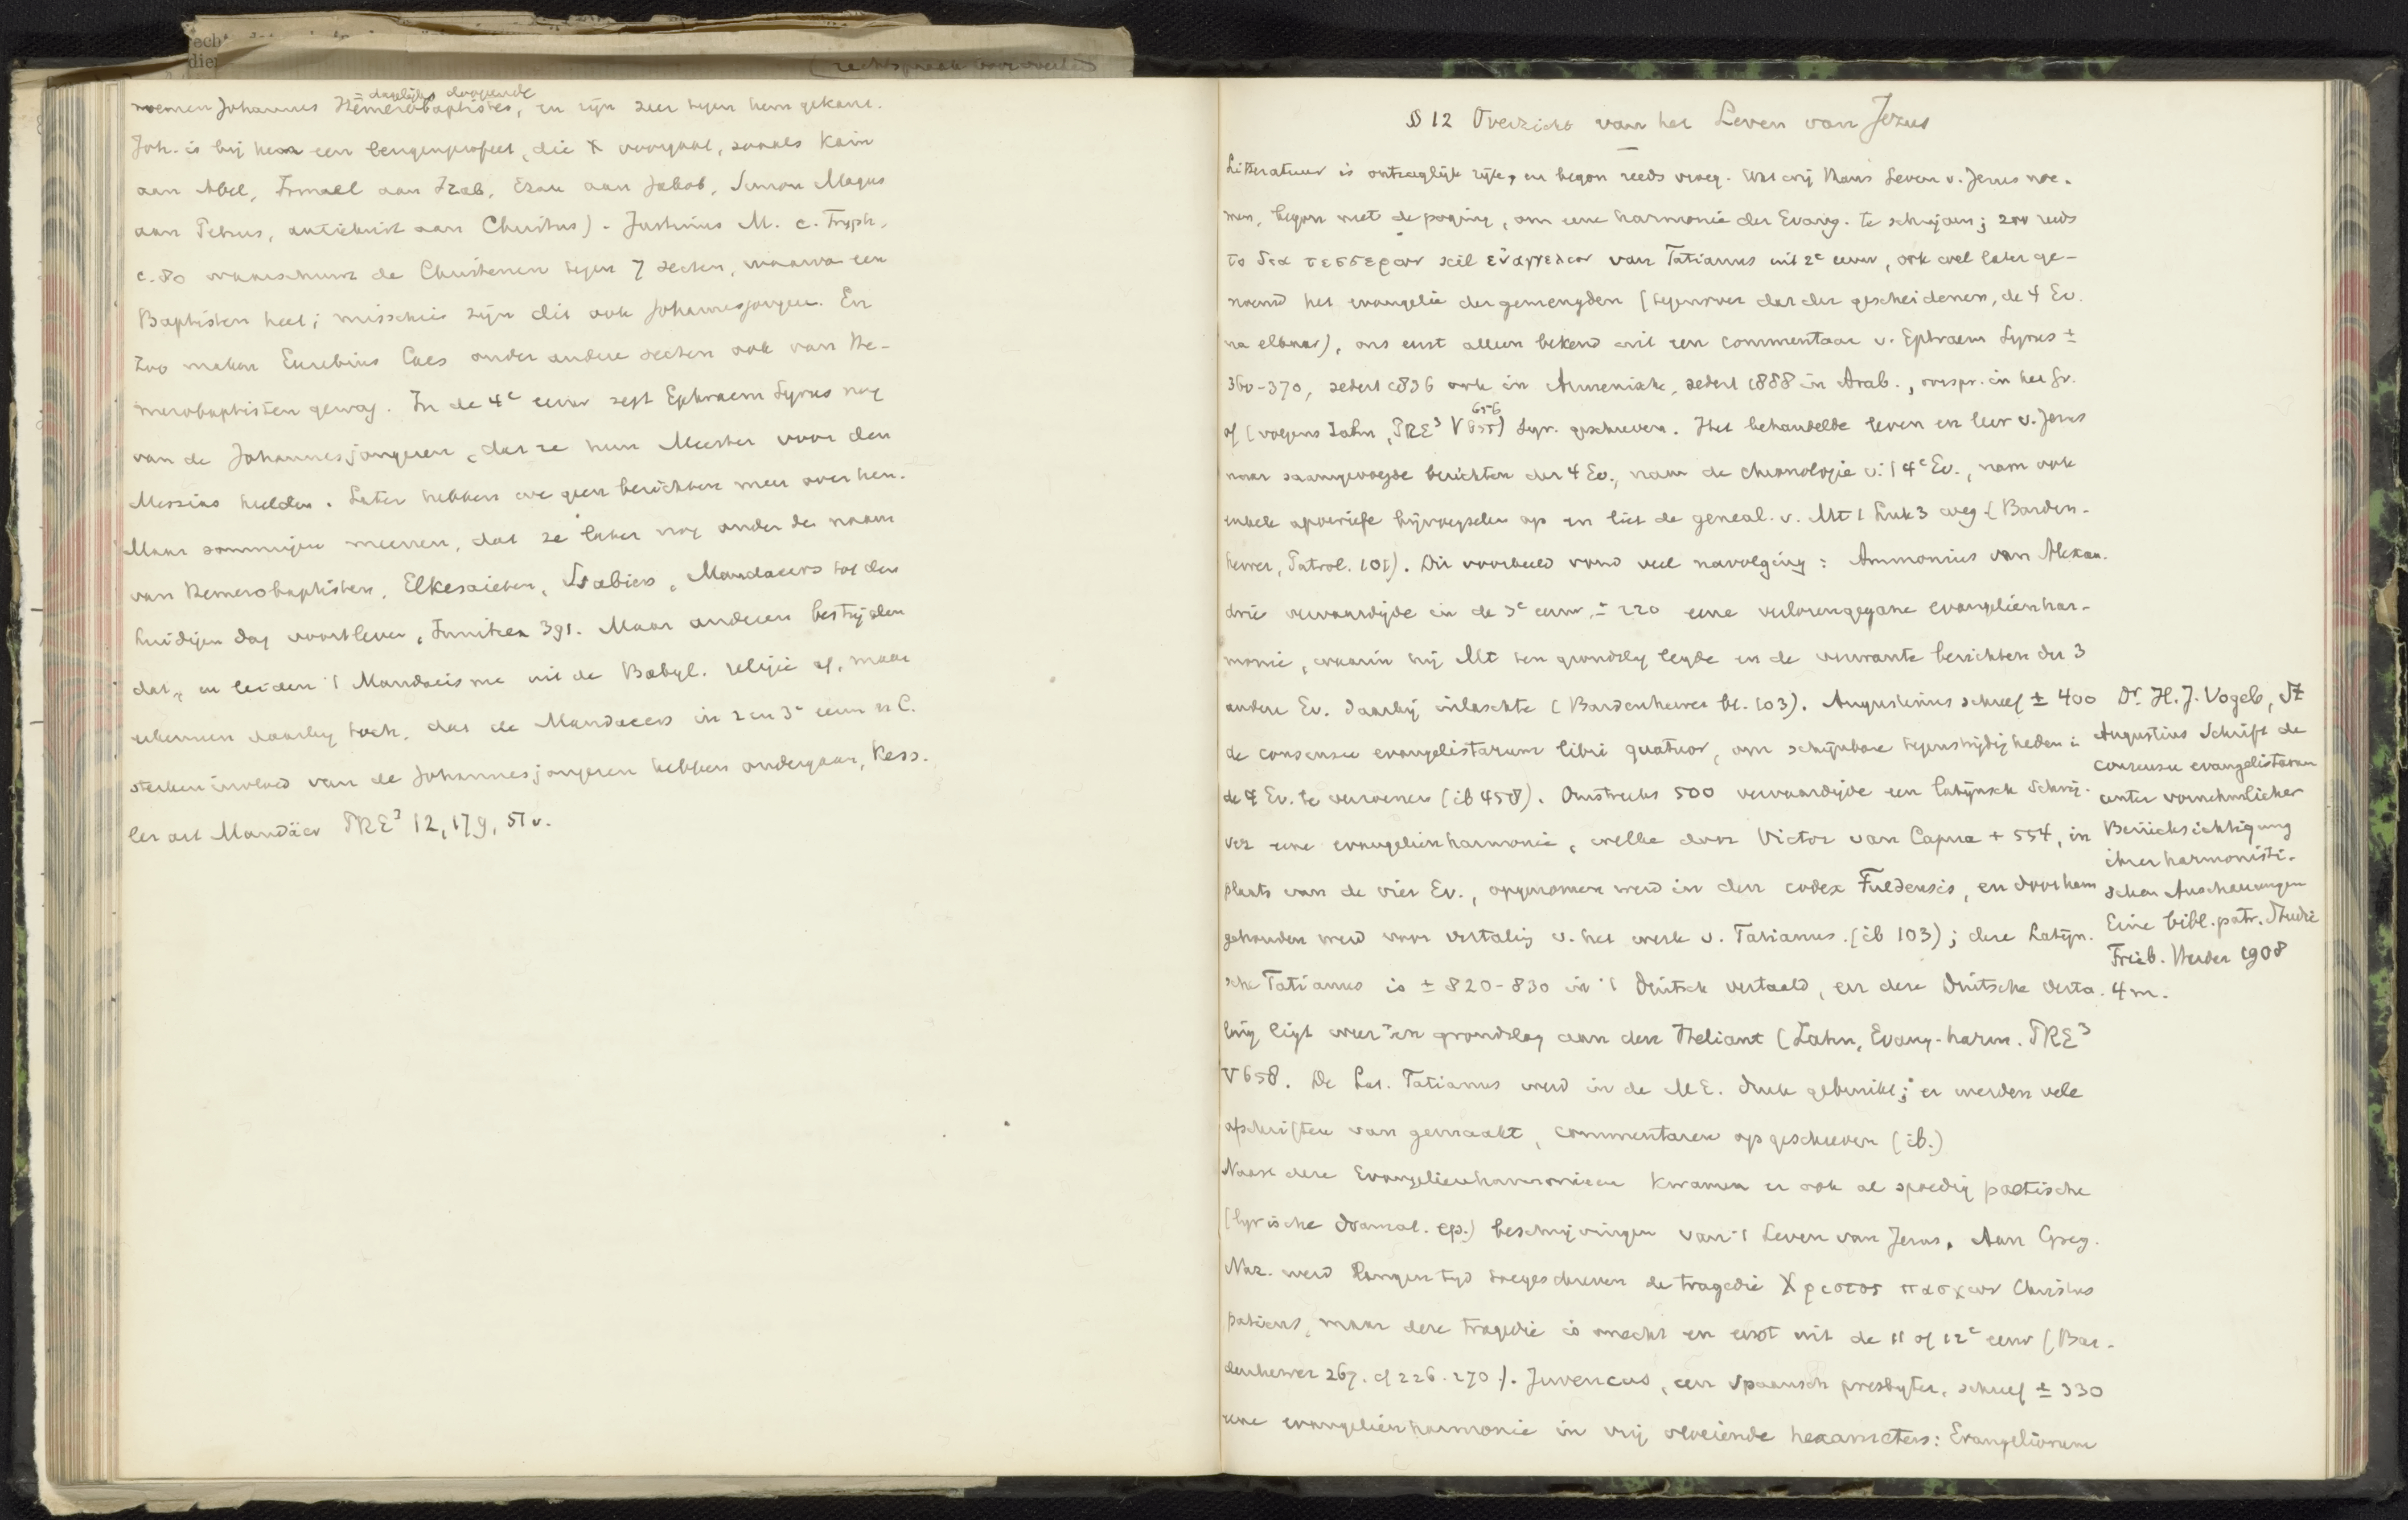 = dagelijks doopende
noemen Johannes Hemerobaptistes, en zijn zeer tegen hem gekant.
Joh. is bij hen een leugenprofeet, die X voorgaat, zooals Kain
aan Abel, Ismael aan Izak, Ezau aan Jakob, Simon Magus
aan Petrus, antichrist aan Christus). Justinus M. c. Tryph.
c. 80 waarschuwt de Christenen tegen 7 secten, waarvan een
Baptisten heet; misschien zijn dit ook Johannesjongeren. En
zoo maken Eusebius Caes onder andere secten ook van He-
merobaptisten gewag. In de 4e eeuw zegt Ephraem Syrus nog
van de Johannesjongeren, dat ze hun Meester voor den
Messias hielden. Later hebben we geen berichten meer over hen.
Maar sommigen meenen, dat ze later nog onder den naam
van Hemerobaptisten, Elkesaieten, Ssabiers, Mandaeers tot den
huidigen dag voortleven, Innitzer 391. Maar anderen bestrijden
dat, en leiden 't Mandaeisme uit de Babyl. religie af, maar
erkennen daarbij toch, dat de Mandaeers in 2 en 3e eeuw n C.
sterken invloed van de Johannesjongeren hebben ondergaan, Kess-
ler art Mandäer PRE3 12, 179, 51 v.
§ 12 Overzicht van het Leven van Jezus
Litteratuur is ontzaglijk rijk, en begon reeds vroeg. Wat wij thans Leven v. Jezus noe-
men, begon met de poging, om eene harmonie der Evang. te schrijven; zoo reeds
το δια τεσσερων scil εὐαγγελιον van Tatianus uit 2e eeuw, ook wel later ge-
noemd het evangelie der gemengden (tegenover dat der gescheidenen, de 4 Ev.
na elkaar), ons eerst alleen bekend uit een commentaar v. Ephraem Syrus ±
360-370, sedert 1836 ook in Armeniak, sedert 1888 in Arab., oorspr. in het Gr.
of (volgens Zahn, PRE3 V 655) Syr. geschreven. Het behandelde leven en leer v. Jezus
656
naar saamgevoegde berichten der 4 Ev., naar de chronologie v. 't 4e Ev., nam ook
enkele apocriefe bijvoegselen op en liet de geneal. v. Mt 1 Luk 3 weg (Barden-
hewer, Patrol. 101). Dit voorbeeld vond veel navolging: Ammonius van Alexan-
drië vervaardigde in de 3e eeuw, ± 220 eene verlorengegane evangeliënhar-
monie, waarin hij Mt ten grondslag legde en de verwante berichten der 3
andere Ev. daarbij inlaschte (Bardenhewer bl. 103). Augustinus schreef ± 400
de consensu evangelistarum libri quatuor, om schijnbare tegenstrijdigheden in
de 4 Ev. te verzoenen (ib 458). Omstreeks 500 vervaardigde een latijnsch schrij-
ver eene evangeliënharmonie, welke door Victor van Capua + 554, in
plaats van de vier Ev., opgenomen werd in den codex Fuldensis, en door hem
gehouden werd voor vertaling v. het werk v. Tatianus. (ib 103); deze Latijn-
sche Tatianus is ± 820-830 in 't Duitsch vertaald, en deze Duitsche verta-
ling ligt weer ten grondslag aan den Heliant (Zahn, Evang-harm. PRE3
V 658. De Lat. Tatianus werd in de M E. druk gebruikt; er werden vele
afschriften van gemaakt, commentaren op geschreven (ib.)
Naast deze Evangelienharmonieen kwamen er ook al spoedig poëtische
(lyrische dramat. ep.) beschrijvingen van 't Leven van Jezus. Aan Greg.
Naz. werd langen tijd toegeschreven de tragedie Χριστος πασχων Christus
patiens, maar deze tragedie is onecht en eerst uit de 11 of 12e eeuw (Bar-
denhewer 267. cf 226. 270). Juvencus, een Spaansch presbyter, schreef ± 330
eene evangeliënharmonie in vrij vloeiende hexameters: Evangeliorum
Dr. H. J. Vogels, St
Augustins Schrift de
consensu evangelistarum
unter vornehmlicher
Berücksichtigung
ihrer harmonisti-
schen Anschauungen
Eine bibl. patr. Studie
Freib. Herder 1908
4 m.